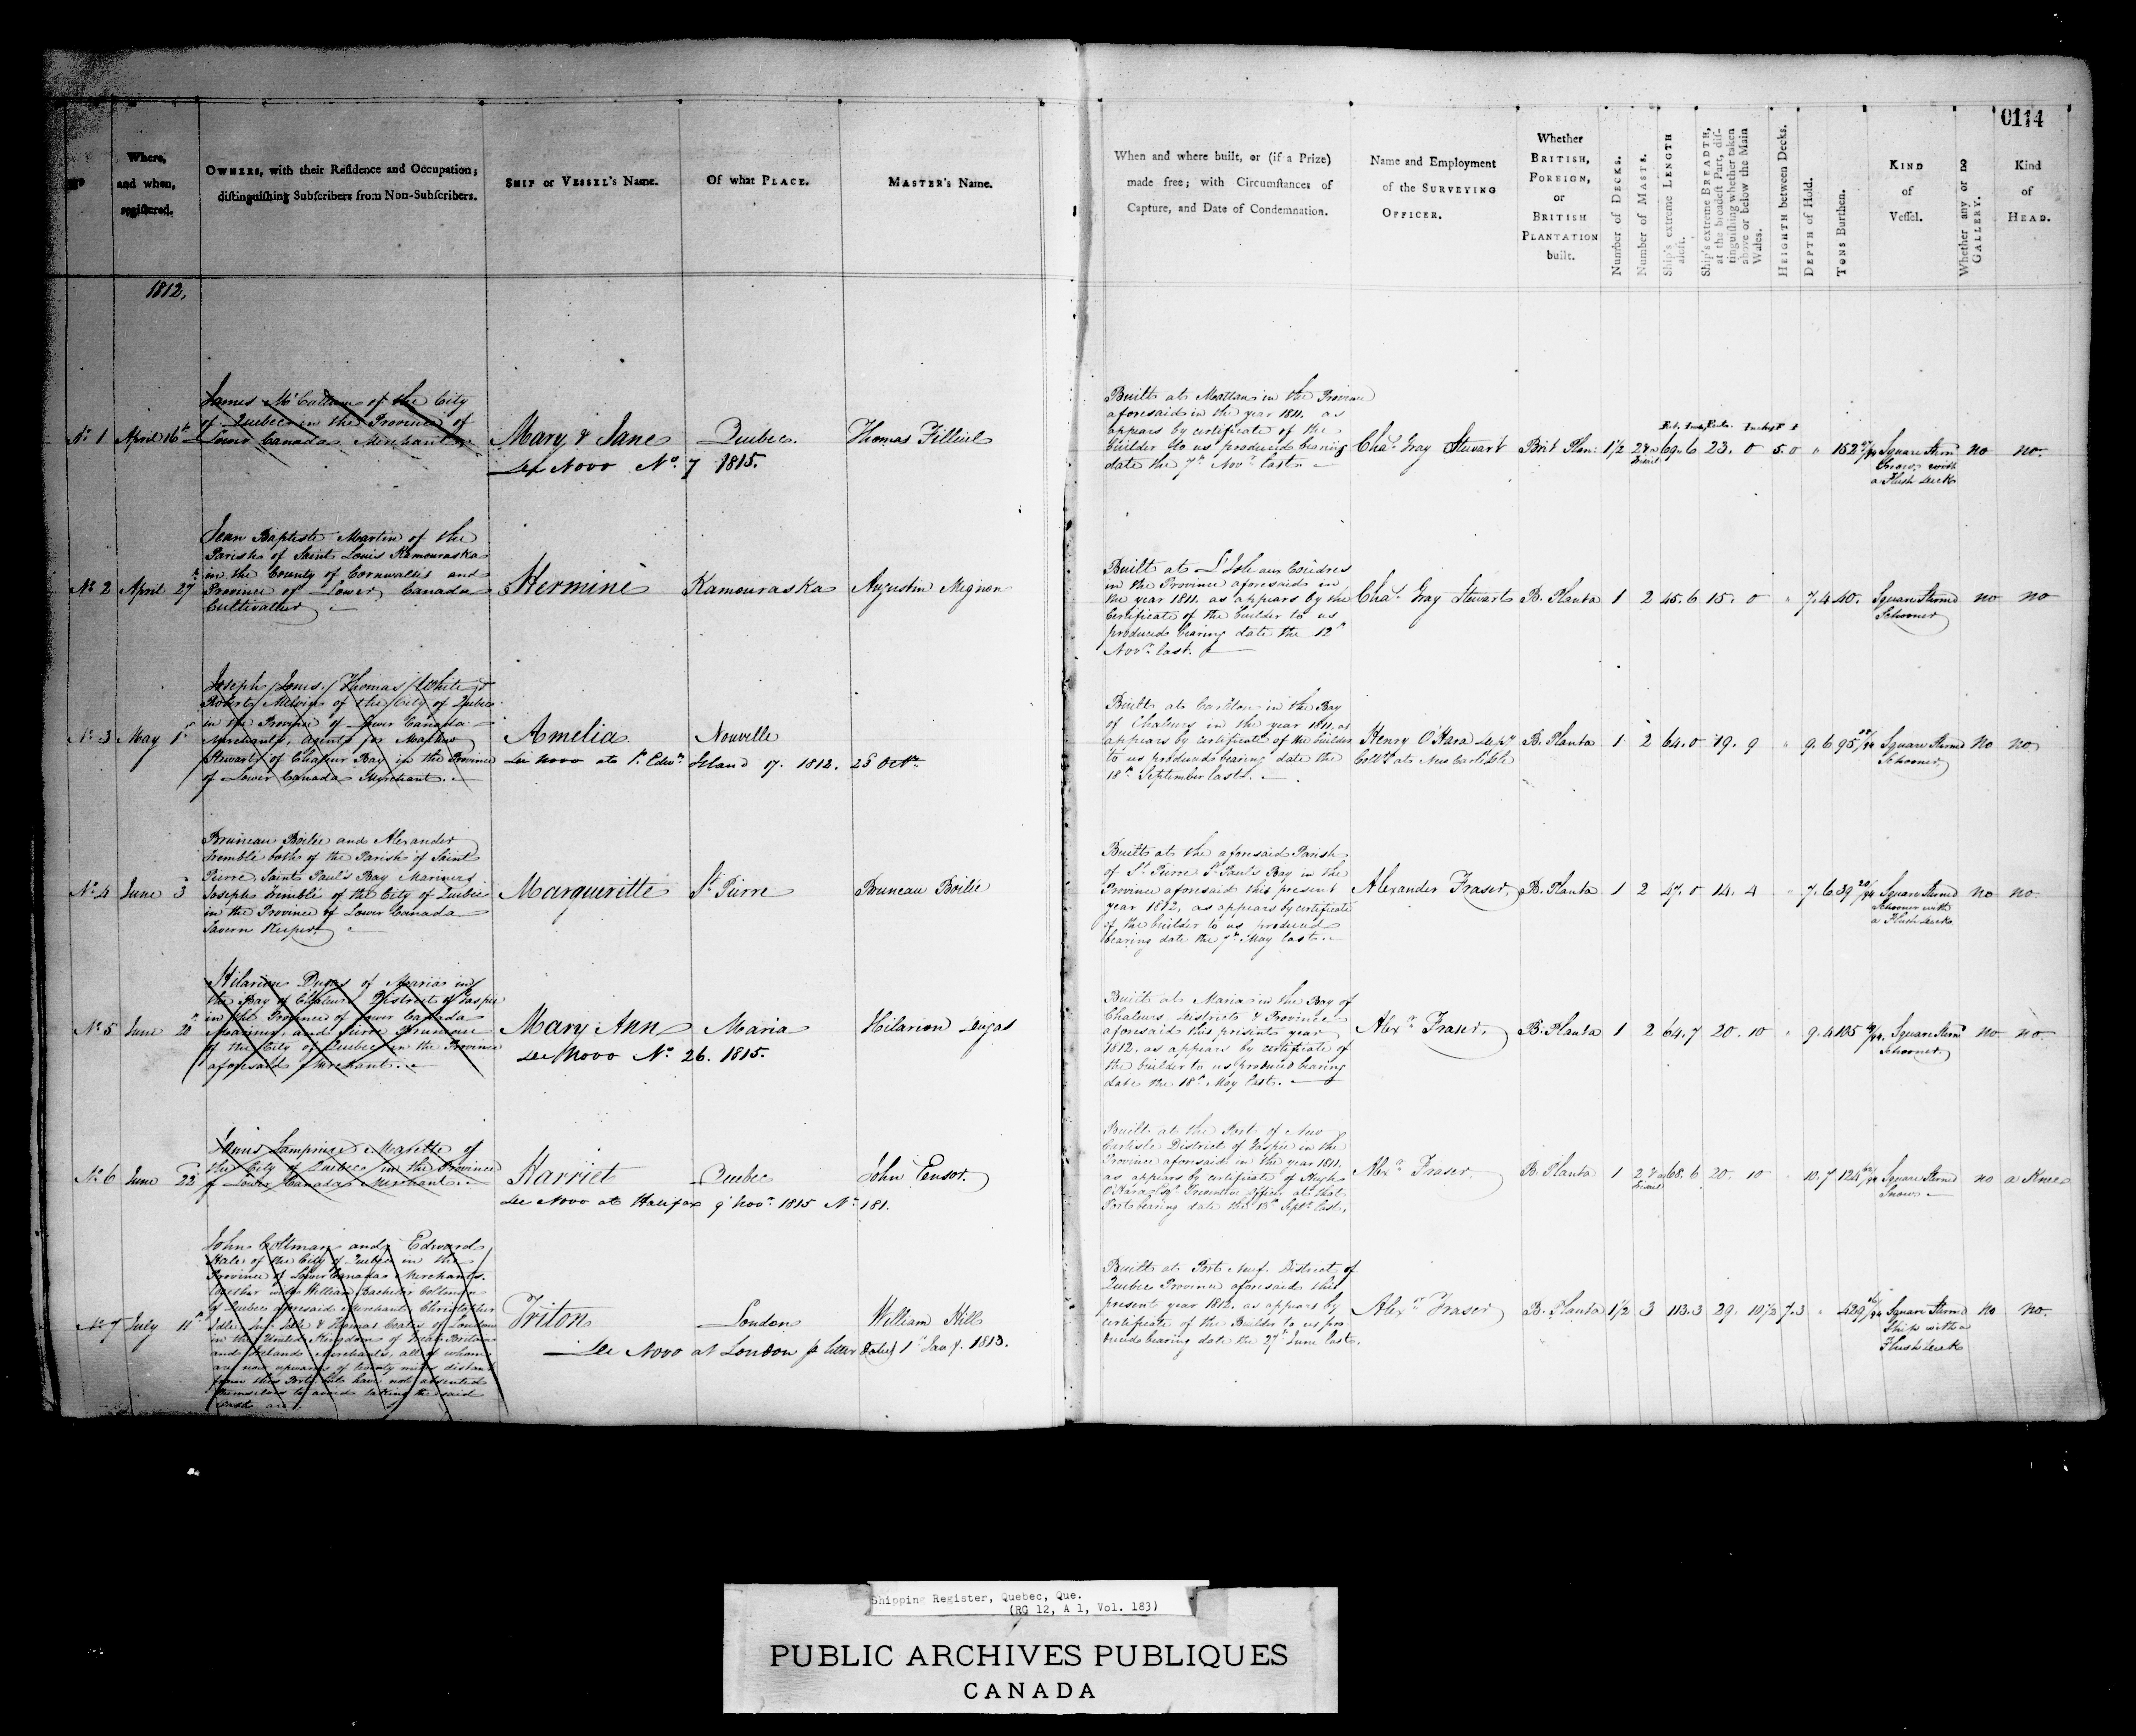 0114
No
Where, and when, registered.
OWNERS, with their Residence and Occupation; distinguishing Subscribers from Non-Subscribers.
SHIP or VESSEL's Name.
Of what PLACE.
MASTER's Name.
When and where built, or (if a Prize) made free; with Circumstances of Capture, and Date of Condemnation.
Name and Employment of the SURVEYING OFFICER.
Whether BRITISH, FOREIGN, or BRITISH PLANTATION built.
Number of DECKS.
Number of MASTS.
Ship's extreme LENGTH aloft.
Ship's extreme BREADTH, at the broadest Part, distinguishing whether taken above or below the Main Wales.
HEIGHTH between Decks.
DEPTH of Hold.
TONS Burthen.
KIND of Vessel.
Whether any or no GALLERY.
Kind of HEAD.
1812.
No 1 April 16th
James McCallum of the City
of Quebec in the Province of
Lower Canada Merchant
Mary & Jane
De Novo No 7 1815.
Quebec.
Thomas Filleul
Built at Mattan in the Province
aforesaid in the year 1811. as
appears by certificate of the
builder to us produced bearing
date the 7th Novr last
Chas Gray Stewart
Brit Plan: 1½ 2 69 6 23. 0 5.0 " 152
Square Sternd
Snow with
a Flush deck
no no.
No 2 April 27th
Jean Baptiste Martin of the
Parish of Saint Louis Kamouraska
in the County of Cornwallis and
Province of Lower Canada
Cultivateur
Hermine
Kamouraska
Augustin Mignon
Built at L'Isle aux Coudres
in the Province aforesaid in
the year 1811. as appears by the
Certificate of the builder to us
produced bearing date the 12th
Novr last.
Chas Gray Stewart
B. Planta 1 2 45. 6 15. 0 " 7. 4 40.
Square Sternd
Schooner
no no
No 3 May 1st
Joseph Jones, Thomas White &
Robert Melvin of the City of Quebec
in the Province of Lower Canada
Merchants, agents for Matthew
Stewart of Chaleur Bay in the Province
of Lower Canada Merchant.
Amelia
De novo at Pr. Edwd Island 17. 1812. 25 Octr
Nouville
Built at Carlton in the Bay
of Chaleurs in the year 1811. as
appears by certificate of the builder
to us produced bearing date the
18th September last.
Henry O'Hara Depy
Collr at New Carlisle
B. Planta 1 2 64. 0 19. 9 " 9. 6 95
Square Sternd
Schooner
no no
No 4 June 3
Bruneau Boilie and Alexander
Tremblé both of the Parish of Saint
Pierre, Saint Paul's Bay Mariners
Joseph Tremblé of the City of Quebec
in the Province of Lower Canada
Tavern Keeper
Margueritte
St Pierre
Bruneau Boilie
Built at the aforesaid Parish
of St Pierre St Paul's Bay in the
Province aforesaid this present
year 1812, as appears by certificate
of the builder to us produced
bearing date the 7th May last.
Alexander Fraser,
B. Planta 1 2 47. 0 14. 4 " 7. 6 39
Square Sternd
Schooner with
a Flush deck
no no.
No 5 June 20th
Hilarion Dugas of Maria in
the Bay of Chaleurs District of Gaspé
in the Province of Lower Canada
Mariner, and Pierre Bruneau
of the City of Quebec in the Province
aforesaid Merchant.
Mary Ann
De Novo No 26. 1815.
Maria
Hilarion Dugas
Built at Maria in the Bay of
Chaleurs, District & Province
aforesaid this present year
1812. as appears by certificate of
the builder to us produced bearing
date the 18th May last.
Alexr Fraser,
B. Planta 1 2 64. 7 20. 10 " 9. 4 105
Square Sternd
Schooner
no no.
No 6 June 22
James Lamprière Marette of
the City of Quebec in the Province
of Lower Canada Merchant.
Harriet
De Novo at Halifax 9 Novr 1815 No 181.
Quebec
John Ensor.
Built at the Port of New
Carlisle District of Gaspé in the
Province aforesaid in the year 1811.
as appears by certificate of Hugh
O'Hara Esqr Preventive Officer at that
Port bearing date the 18th Septr last,
Alexr Fraser
B. Planta 1 2 68. 6 20. 10 10. 7 124
Square Sternd
Snow
no a Knee
No 7 July 11th
John Coltman and Edward
Hale of the City of Quebec in the
Province of Lower Canada Merchants.
together with William Bachelor Coltman
of Quebec aforesaid Merchant Christopher
Idle, Idle & Thomas Coates of London
in the United Kingdom of Great Britain
and Ireland Merchants, all of whom
are now upwards of twenty miles distant
from this Port but have not absented
themselves to avoid taking the said
Oath are
Triton
De Novo at London p letter Dated 1st Jany. 1813.
London
William Hill
Built at Port Neuf. District of
Quebec Province aforesaid this
present year 1812. as appears by
certificate of the Builder to us pro-
duced bearing date the 27th June last.
Alexr Fraser
B. Planta 1½ 3 113. 3 29. 10½ 7. 3 " 429
Square Sternd
Ship with a
Flush deck
no no.
Shipping Register, Quebec, Que.
(RG 12, A 1, Vol. 183)
PUBLIC ARCHIVES PUBLIQUES
CANADA